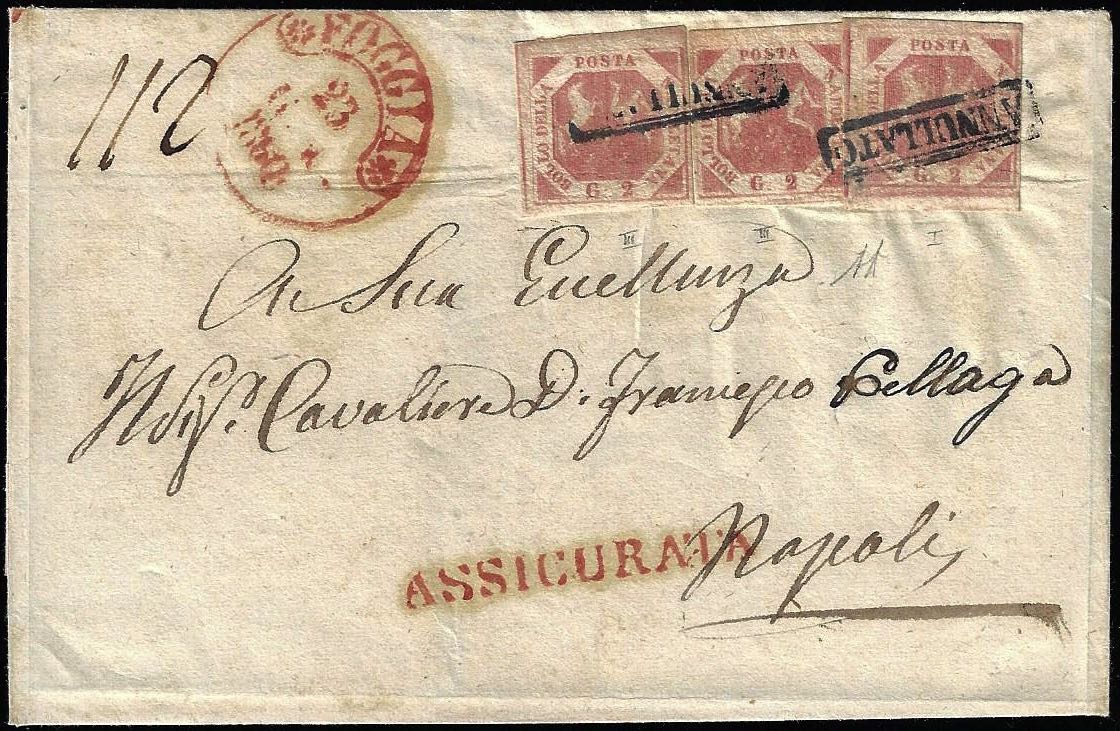 112
FOGGIA
23
1860
POSTA
BOLLO DELLA
G. 2
POSTA
BOLLO DELLA
G. 2
POSTA
G. 2
ANNULLATO
III
III
I
A Sua Eccellenza
Cavaliere D:
Napoli
ASSICURATA